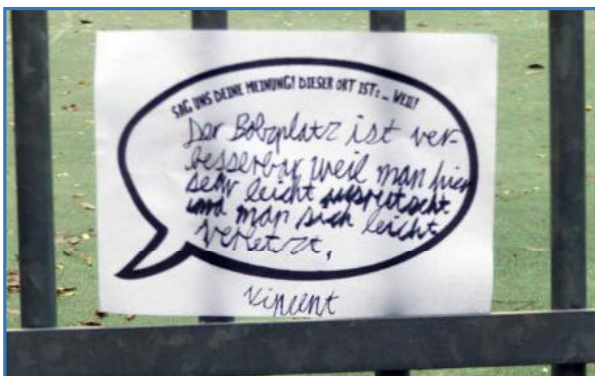 SAG UNS DEINE MEINUNG! DIESER ORT IST: ... WEIL!
Der Bolzplatz ist ver-
besserbar weil man hier
sehr leicht ausrutscht
und man sich leicht
verletzt,
Vincent